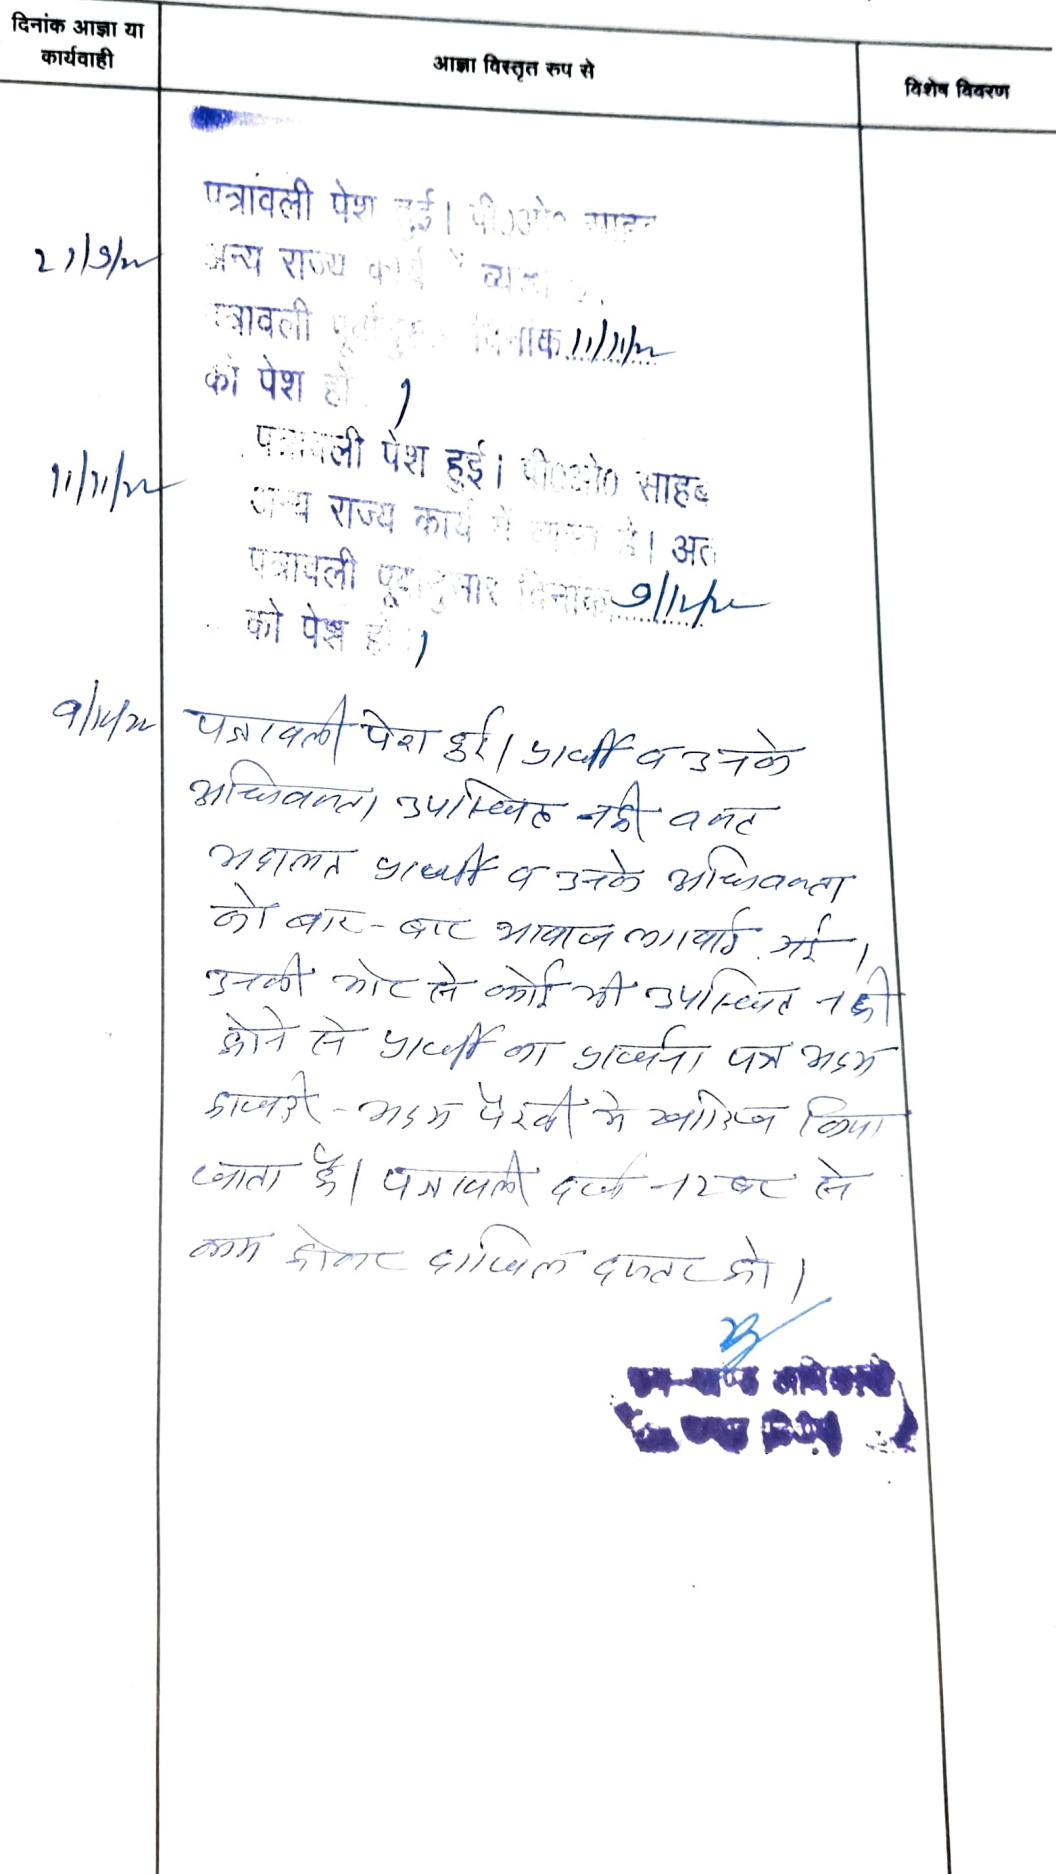 दिनांक आज्ञा या
कार्यवाही
आज्ञा विस्तृत रुप से
विशेष विवरण
पत्रावली पेश हुई। पी०ओ० साहब
27/9/22
अन्य राज्य कार्य में व्यस्त
पत्रावली पूर्वानुसार दिनांक 11/11/22
को पेश हो।
11/11/22
पत्रावली पेश हुई। पी०ओ० साहब
अन्य राज्य कार्य में व्यस्त है। अत
पत्रावली पूर्वानुसार दिनांक 9/12/22
को पेश हो।
9/12/22
पत्रावली पेश हुई। प्रार्थी व उनके
अधिवक्ता उपस्थित नही वक्त
अदालत प्रार्थी व उनके अधिवक्ता
को बार-बार आवाज लगवाई गई।
उनकी ओर से कोई भी उपस्थित नही
होने से प्रार्थी का प्रार्थना पत्र अदम
हाजरी-अदम पैरवी मे खारिज किया
जाता है। पत्रावली दर्ज नम्बर से
कम होकर दाखिल दफ्तर हो।
उप-खण्ड अधिकारी